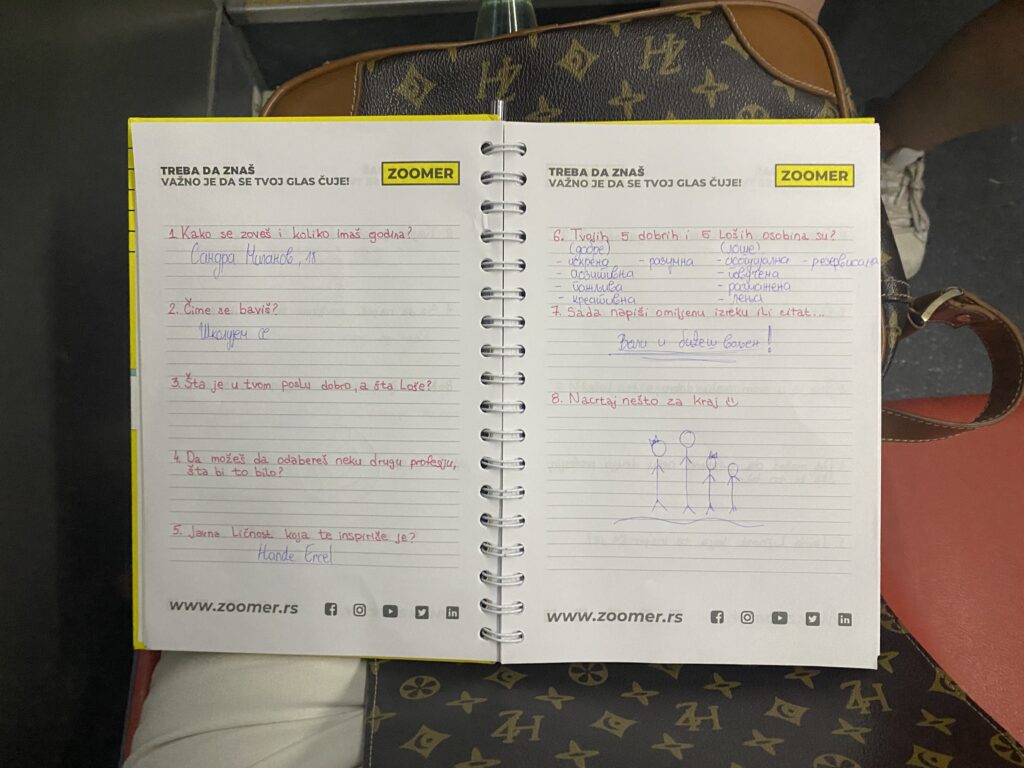 TREBA DA ZNAŠ
VAŽNO JE DA SE TVOJ GLAS ČUJE!
ZOOMER
1. Kako se zoveš i koliko imaš godina?
Сандра Миланов, 18
2. Čime se baviš?
Школујем се
3. Šta je u tvom poslu dobro, a šta loše?
4. Da možeš da odabereš neku drugu profesiju,
šta bi to bilo?
5. Javna ličnost koja te inspiriše je?
Hande Ercel
www.zoomer.rs
TREBA DA ZNAŠ
VAŽNO JE DA SE TVOJ GLAS ČUJE!
ZOOMER
6. Tvojih 5 dobrih i 5 loših osobina su?
(добре) (лоше)
- искрена - разумна - - резервисана
- - повучена
- пажљива - размажена
- креативна - лења
7. Sada napiši omiljenu izreku ili citat...
Воли и бићеш вољен!
8. Nacrtaj nešto za kraj
www.zoomer.rs